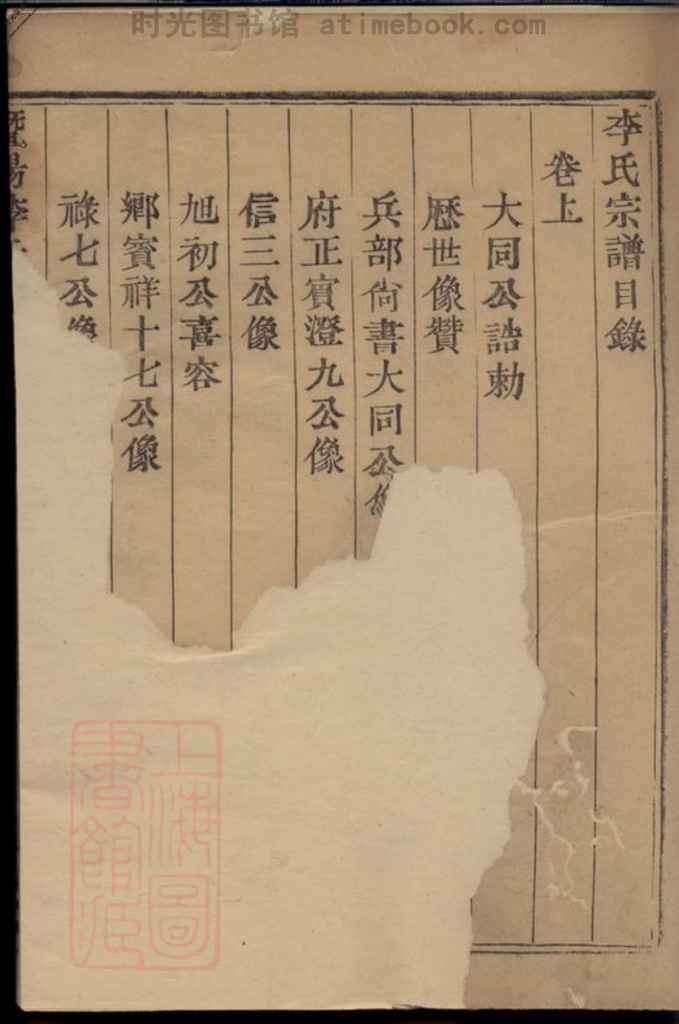 时光图书馆 atimebook.com
李氏宗譜目錄
卷上
大同公誥勅
歷世像贊
兵部尙書大同公像
府正賓澄九公像
信三公像
旭初公喜容
鄉賓祥十七公像
祿七公像
暨陽李
上海圖
書館藏